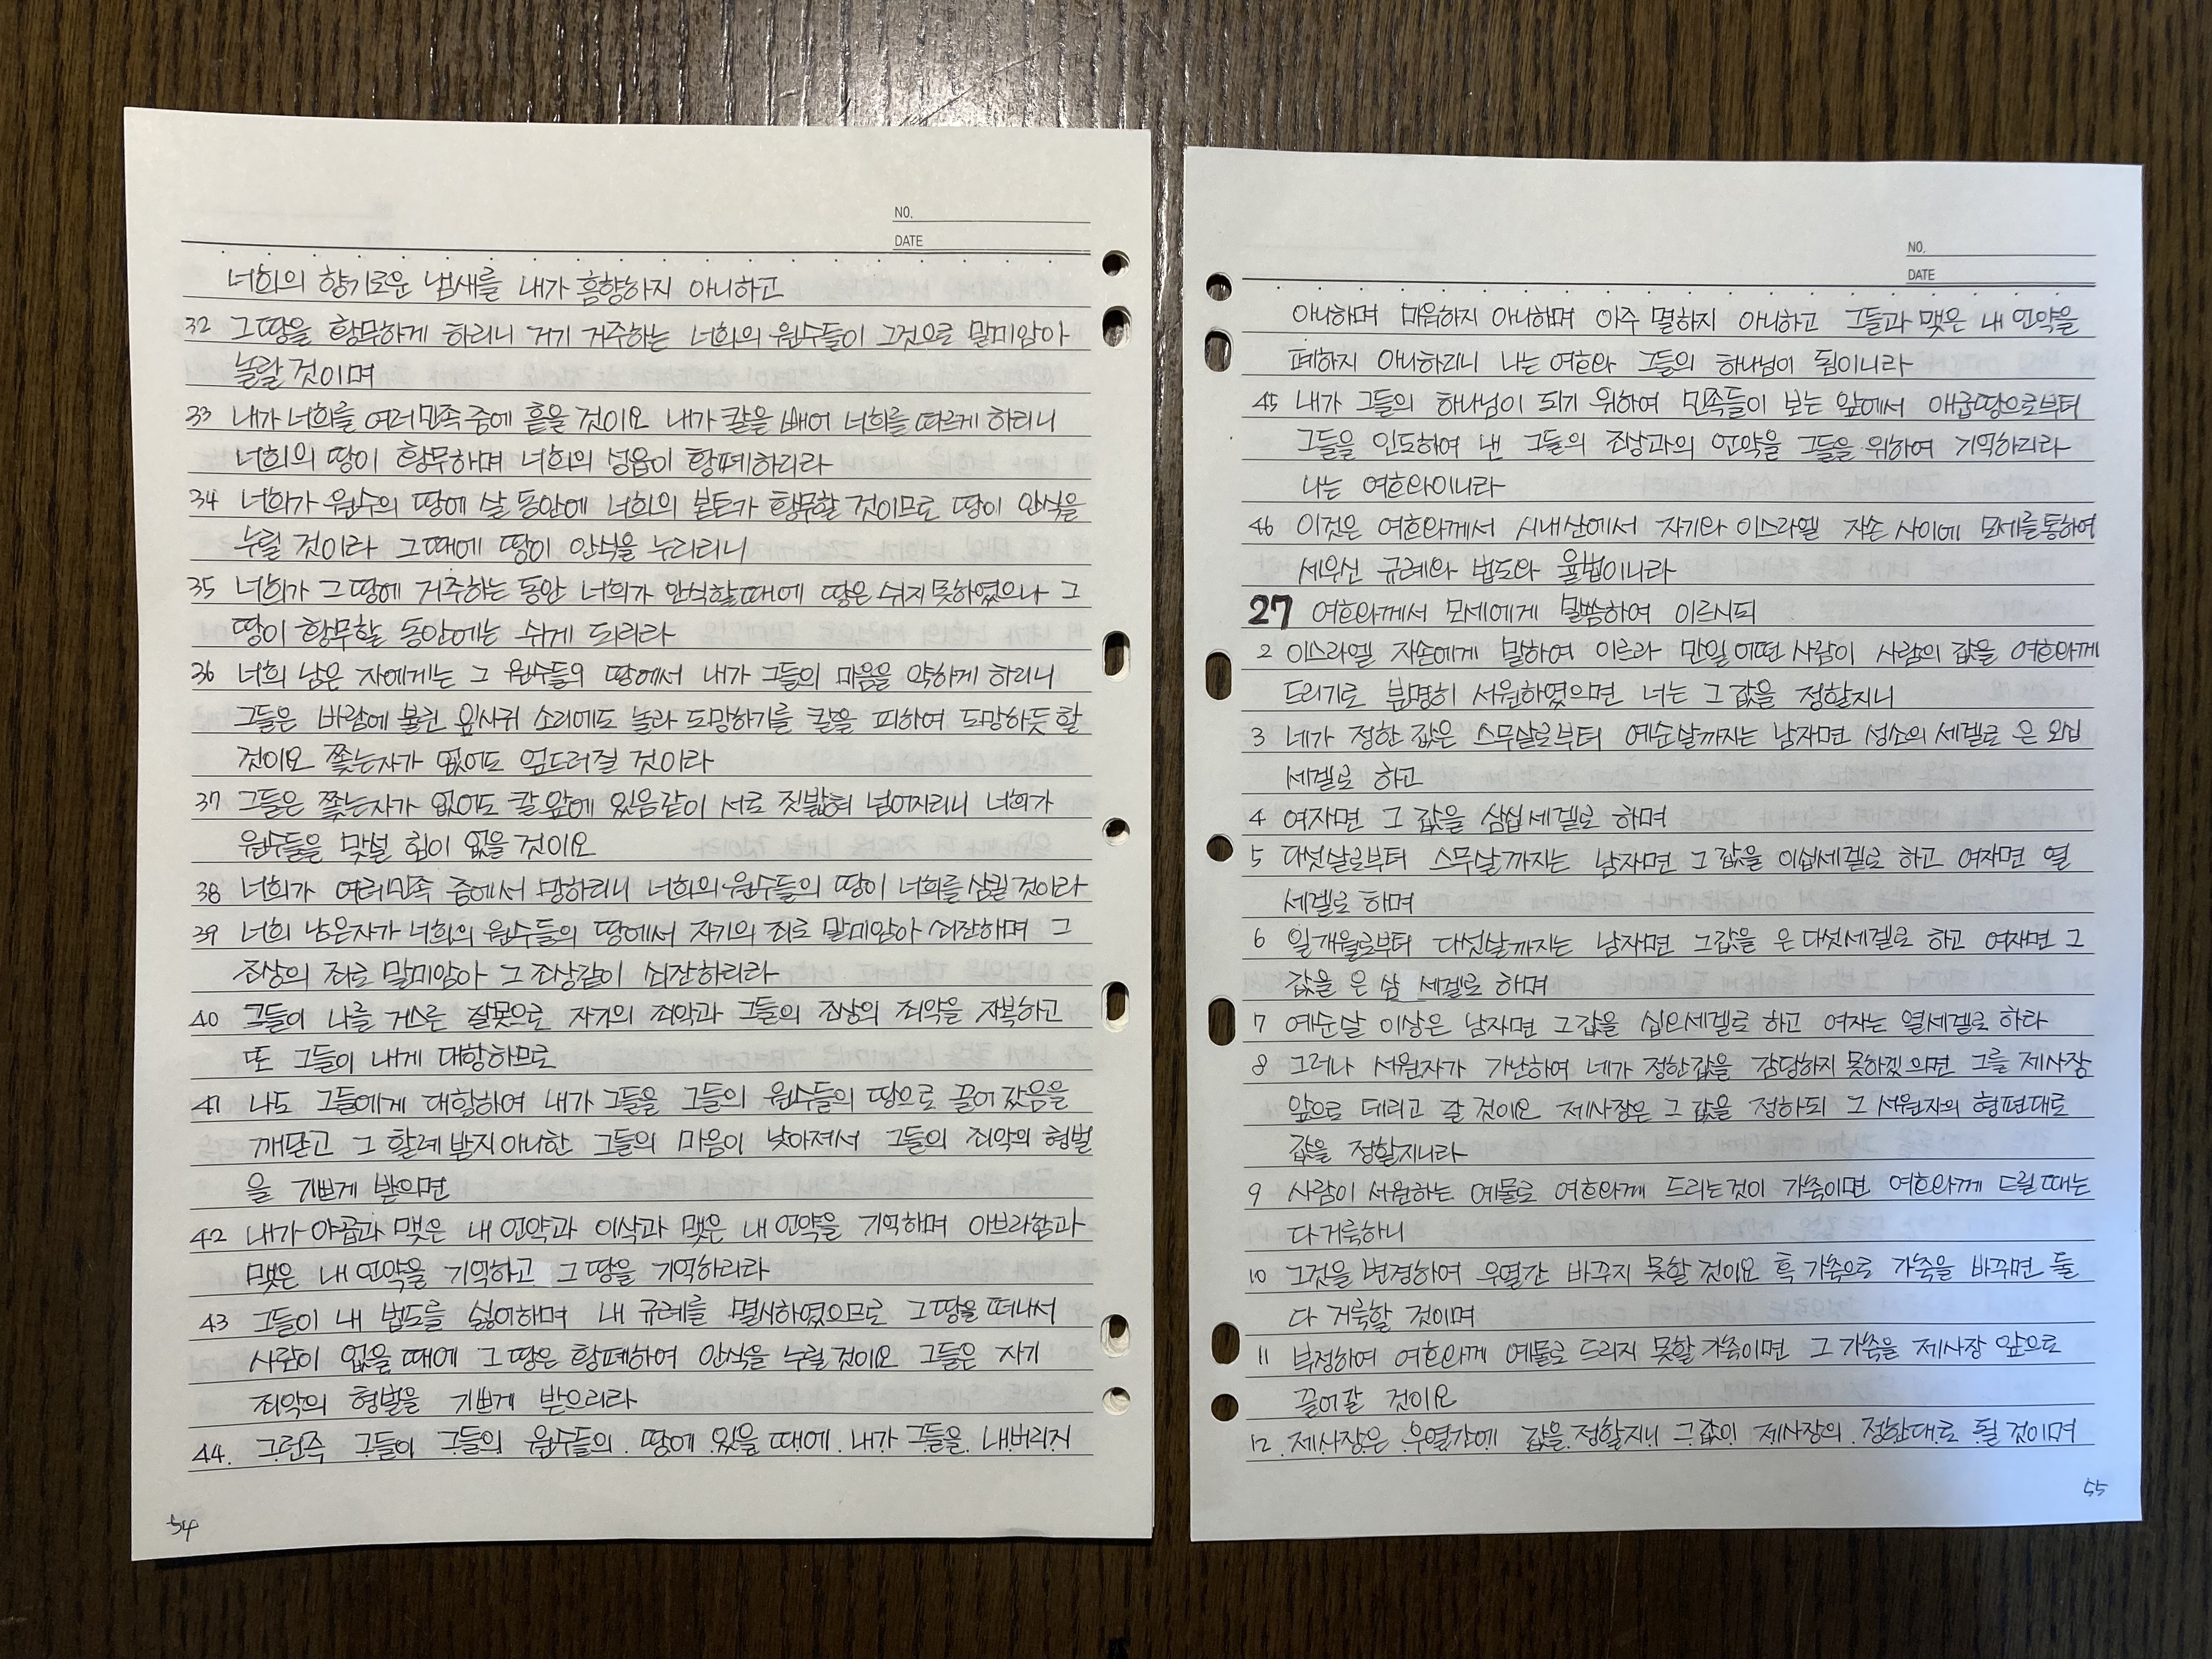 NO.
DATE
너희의 향기로운 냄새를 내가 흠향하지 아니하고
32 그 땅을 황무하게 하리니 거기 거주하는 너희의 원수들이 그것으로 말미암아
놀랄 것이며
33 내가 너희를 여러 민족 중에 흩을 것이요 내가 칼을 빼어 너희를 따르게 하리니
너희의 땅이 황무하며 너희의 성읍이 황폐하리라
34 너희가 원수의 땅에 살 동안에 너희의 본토가 황무할 것이므로 땅이 안식을
누릴 것이라 그 때에 땅이 안식을 누리리니
35 너희가 그 땅에 거주하는 동안 너희가 안식할 때에 땅은 쉬지 못하였으나 그
땅이 황무할 동안에는 쉬게 되리라
36 너희 남은 자에게는 그 원수들의 땅에서 내가 그들의 마음을 약하게 하리니
그들은 바람에 불린 잎사귀 소리에도 놀라 도망하기를 칼을 피하여 도망하듯 할
것이요 쫓는자가 없어도 엎드러질 것이라
37 그들은 쫓는자가 없어도 칼 앞에 있음같이 서로 짓밟혀 넘어지리니 너희가
원수들을 맞설 힘이 없을 것이요
38 너희가 여러 민족 중에서 망하리니 너희의 원수들의 땅이 너희를 삼킬 것이라
39 너희 남은자가 너희의 원수들의 땅에서 자기의 죄로 말미암아 쇠잔하며 그
조상의 죄로 말미암아 그 조상같이 쇠잔하리라
40 그들이 나를 거스른 잘못으로 자기의 죄악과 그들의 조상의 죄악을 자복하고
또 그들이 내게 대항하므로
41 나도 그들에게 대항하여 내가 그들을 그들의 원수들의 땅으로 끌어 갔음을
깨닫고 그 할례 받지 아니한 그들의 마음이 낮아져서 그들의 죄악의 형벌
을 기쁘게 받으면
42 내가 야곱과 맺은 내 언약과 이삭과 맺은 내 언약을 기억하며 아브라함과
맺은 내 언약을 기억하고 그 땅을 기억하리라
43 그들이 내 법도를 싫어하며 내 규례를 멸시하였으므로 그 땅을 떠나서
사람이 없을 때에 그 땅은 황폐하여 안식을 누릴 것이요 그들은 자기
죄악의 형벌을 기쁘게 받으리라
44. 그런즉 그들이 그들의 원수들의 땅에 있을 때에 내가 그들을 내버리지
54
NO.
DATE
아니하며 미워하지 아니하며 아주 멸하지 아니하고 그들과 맺은 내 언약을
폐하지 아니하리니 나는 여호와 그들의 하나님이 됨이니라
45 내가 그들의 하나님이 되기 위하여 민족들이 보는 앞에서 애굽땅으로부터
그들을 인도하여 낸 그들의 조상과의 언약을 그들을 위하여 기억하리라
나는 여호와이니라
46 이것은 여호와께서 시내산에서 자기와 이스라엘 자손 사이에 모세를 통하여
세우신 규례와 법도와 율법이니라
27 여호와께서 모세에게 말씀하여 이르시되
2 이스라엘 자손에게 말하여 이르라 만일 어떤 사람이 사람의 값을 여호와께
드리기로 분명히 서원하였으면 너는 그 값을 정할지니
3 네가 정한 값은 스무살로부터 예순살까지는 남자면 성소의 세겔로 은 오십
세겔로 하고
4 여자면 그 값을 삼십 세겔로 하며
5 다섯살로부터 스무살까지는 남자면 그 값을 이십세겔로 하고 여자면 열
세겔로 하며
6 일개월로부터 다섯살까지는 남자면 그값을 은 다섯세겔로 하고 여자면 그
값을 은 삼 세겔로 하며
7 예순살 이상은 남자면 그 값을 십오세겔로 하고 여자는 열세겔로 하라
8 그러나 서원자가 가난하여 네가 정한값을 감당하지 못하겠으면 그를 제사장
앞으로 데리고 갈 것이요 제사장은 그 값을 정하되 그 서원자의 형편대로
값을 정할지니라
9 사람이 서원하는 예물로 여호와께 드리는것이 가축이면 여호와께 드릴 때는
다 거룩하니
10 그것을 변경하여 우열간 바꾸지 못할 것이요 혹 가축으로 가축을 바꾸면 둘
다 거룩할 것이며
11 부정하여 여호와께 예물로 드리지 못할 가축이면 그 가축을 제사장 앞으로
끌어갈 것이요
12. 제사장은 우열간에 값을 정할지니 그 값이 제사장의 정한대로 될 것이며
55